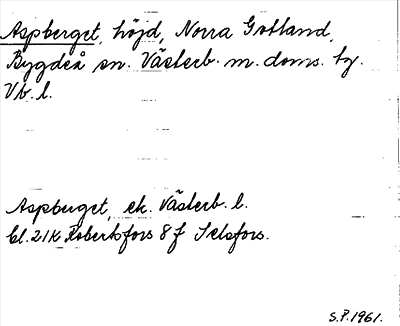 Aspberget, höjd, Norra Gotland,
Bygdeå sn. Västerb. m. doms. tg.
Vb. l.
Aspberget, ek. Västerb. l.
bl. 21K Robertsfors 8 f Selsfors.
S.P. 1961.